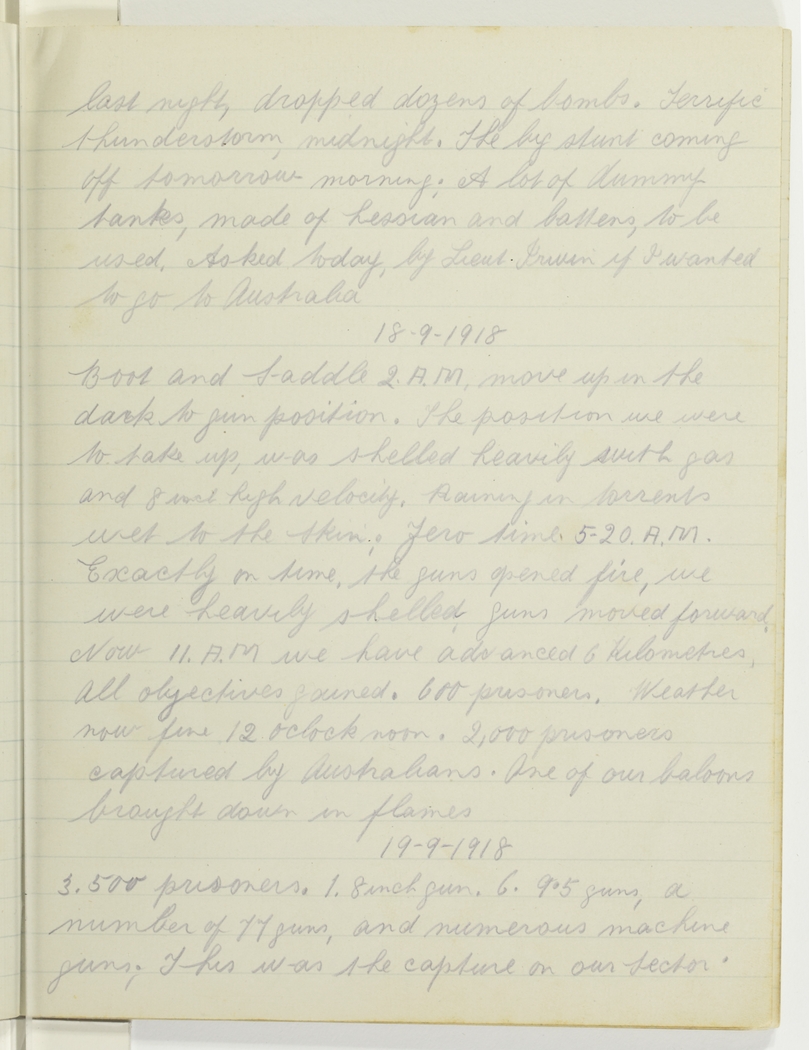 last night, dropped dozens of bombs. Terrific
thunderstorm, midnight. The big stunt coming
off tomorrow morning. A lot of dummy
tanks, made of hessian and battens, to be
used. Asked today, by Lieut. Irwin if I wanted
to go to Australia
18-9-1918
Boot and Saddle 2. A.M, move up in the
dark to gun position. The position we were
to take up, was shelled heavily with gas
and 8 inch high velocity. Raining in torrents
wet to the skin. Zero time 5-20. A.M.
Exactly on time, the guns opened fire, we
were heavily shelled, guns moved forward.
Now 11. A.M we have advanced 6 Kilometres,
All objectives gained. 600 prisoners. Weather
now fine 12 oclock noon. 2,000 prisoners
captured by Australians. One of our baloons
brought down in flames
19-9-1918
3.500 prisoners. 1. 8 inch gun. 6. 9.5 guns, a
number of 77 guns, and numerous machine
guns. This was the capture on our sector.